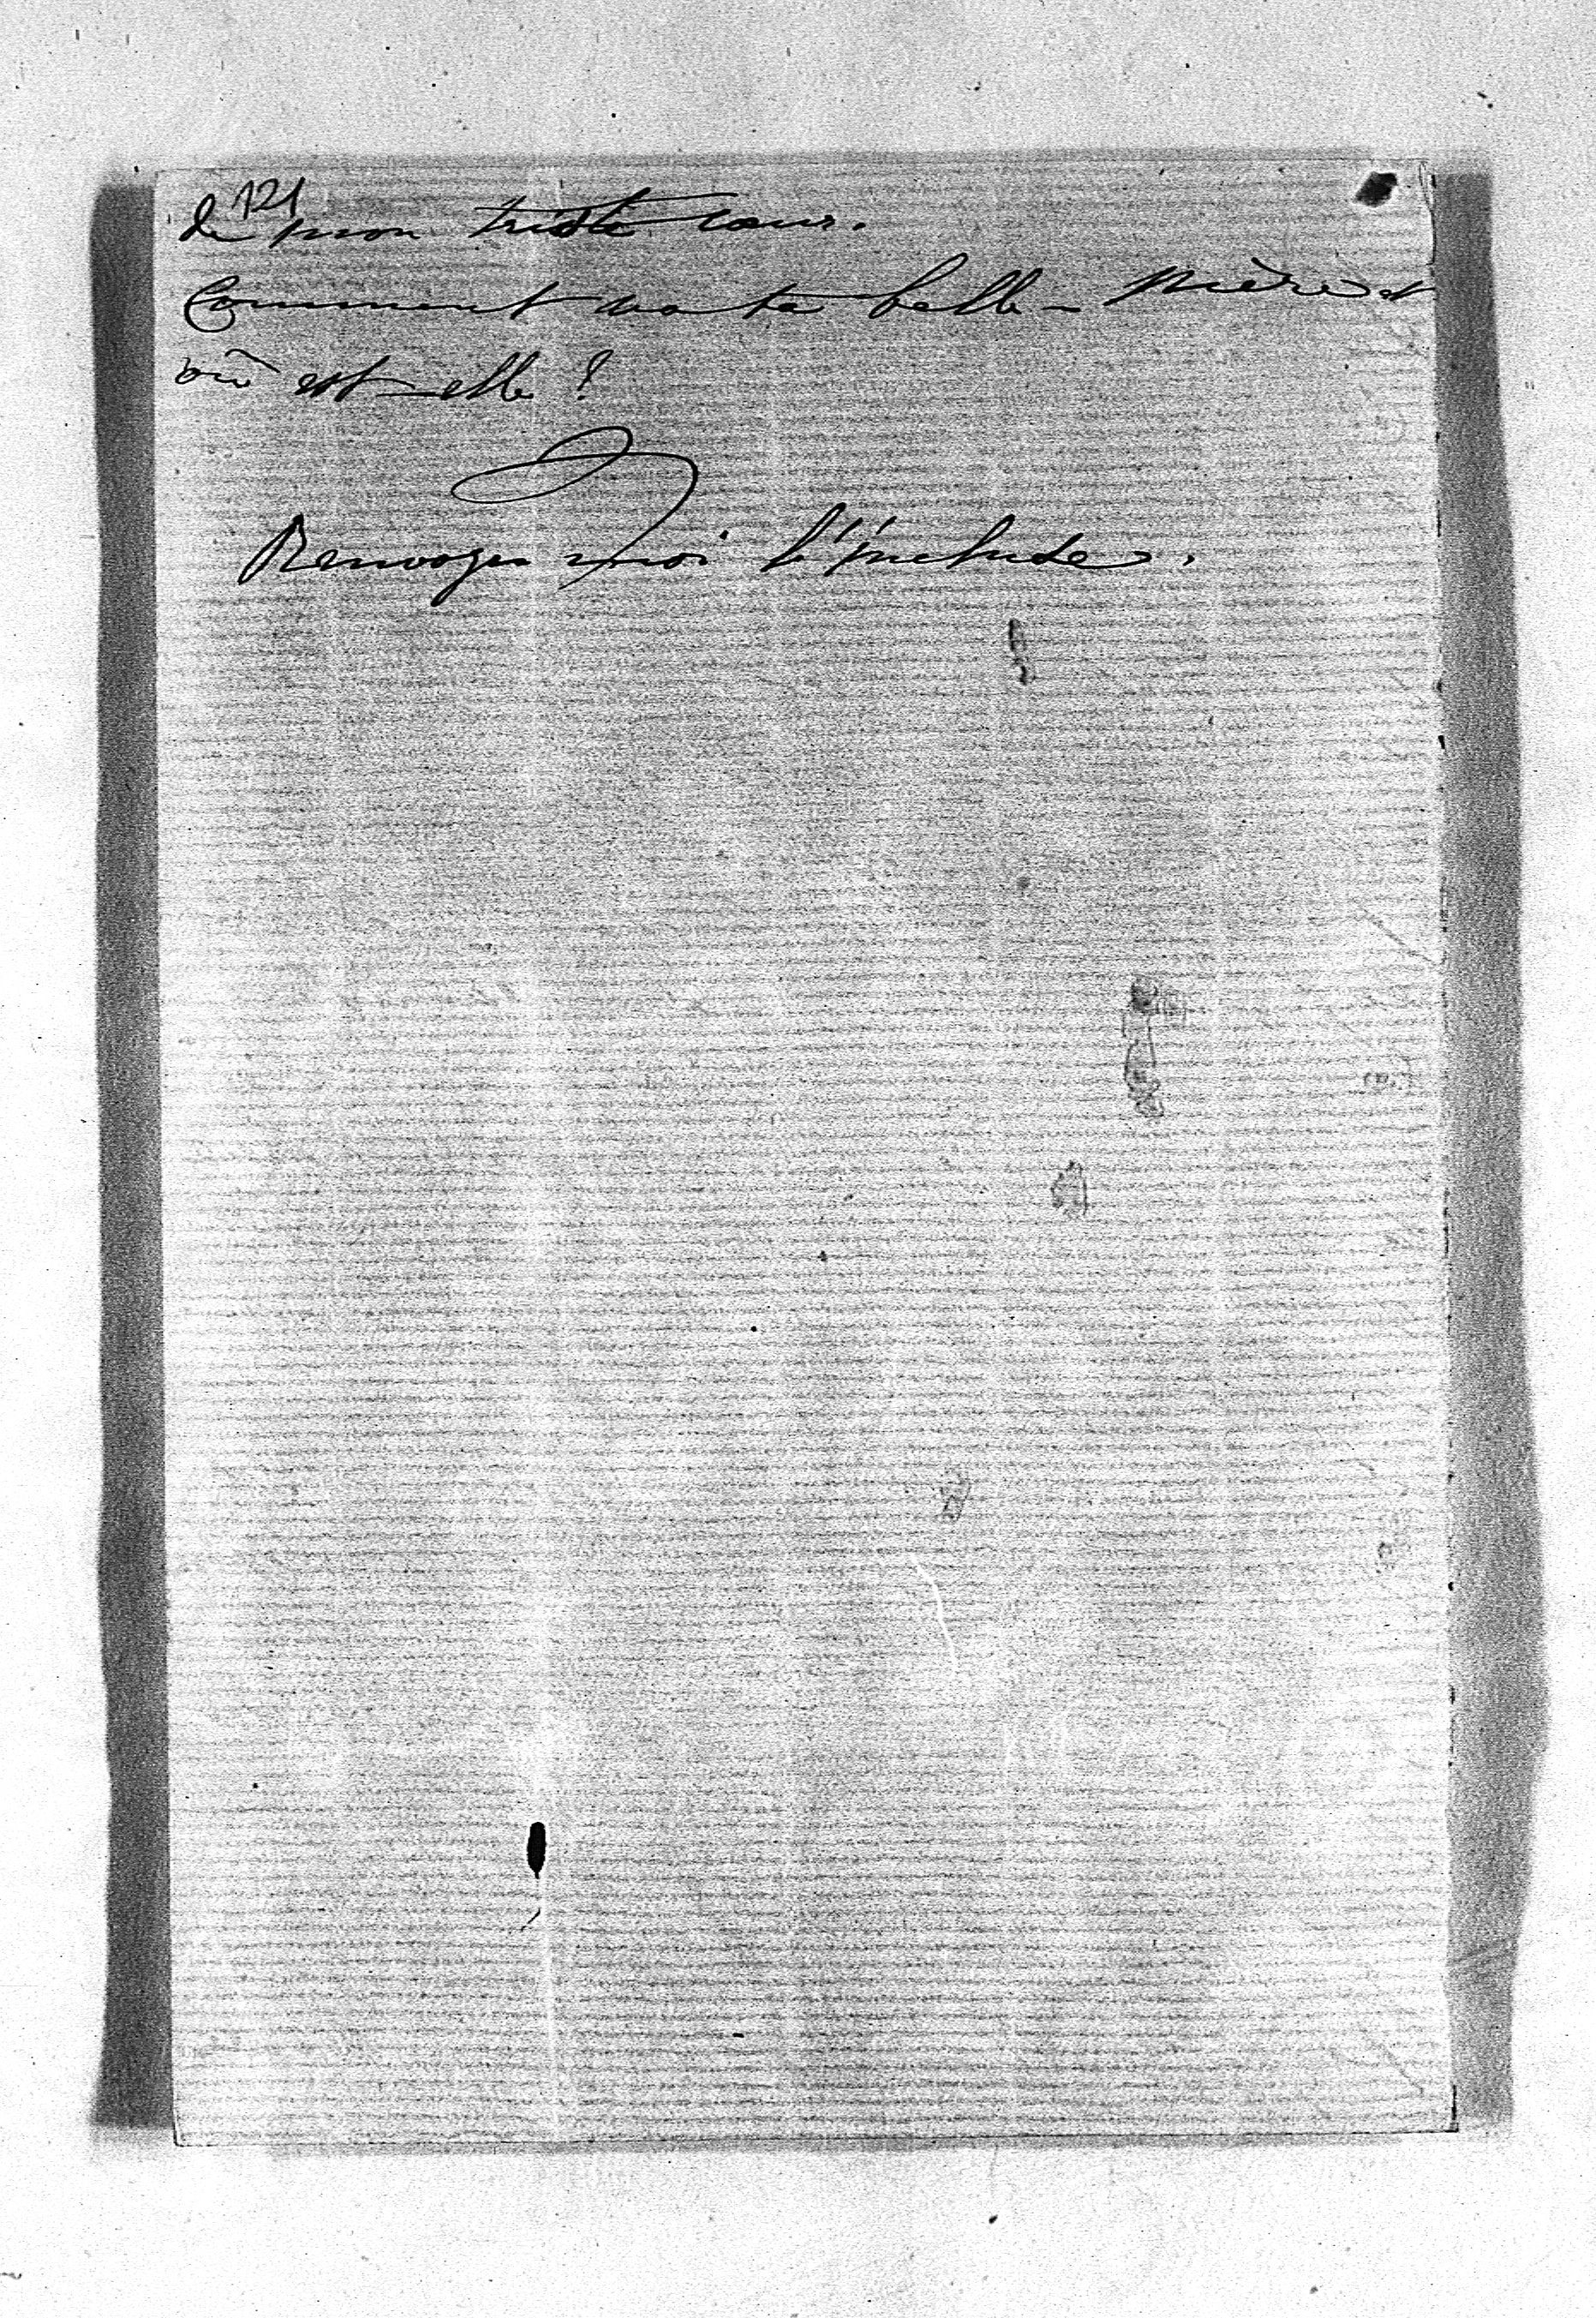 121
de mon triste cœur.
Comment va ta belle-Mère et
où est-elle ?
Renvoyez moi l'incluse.